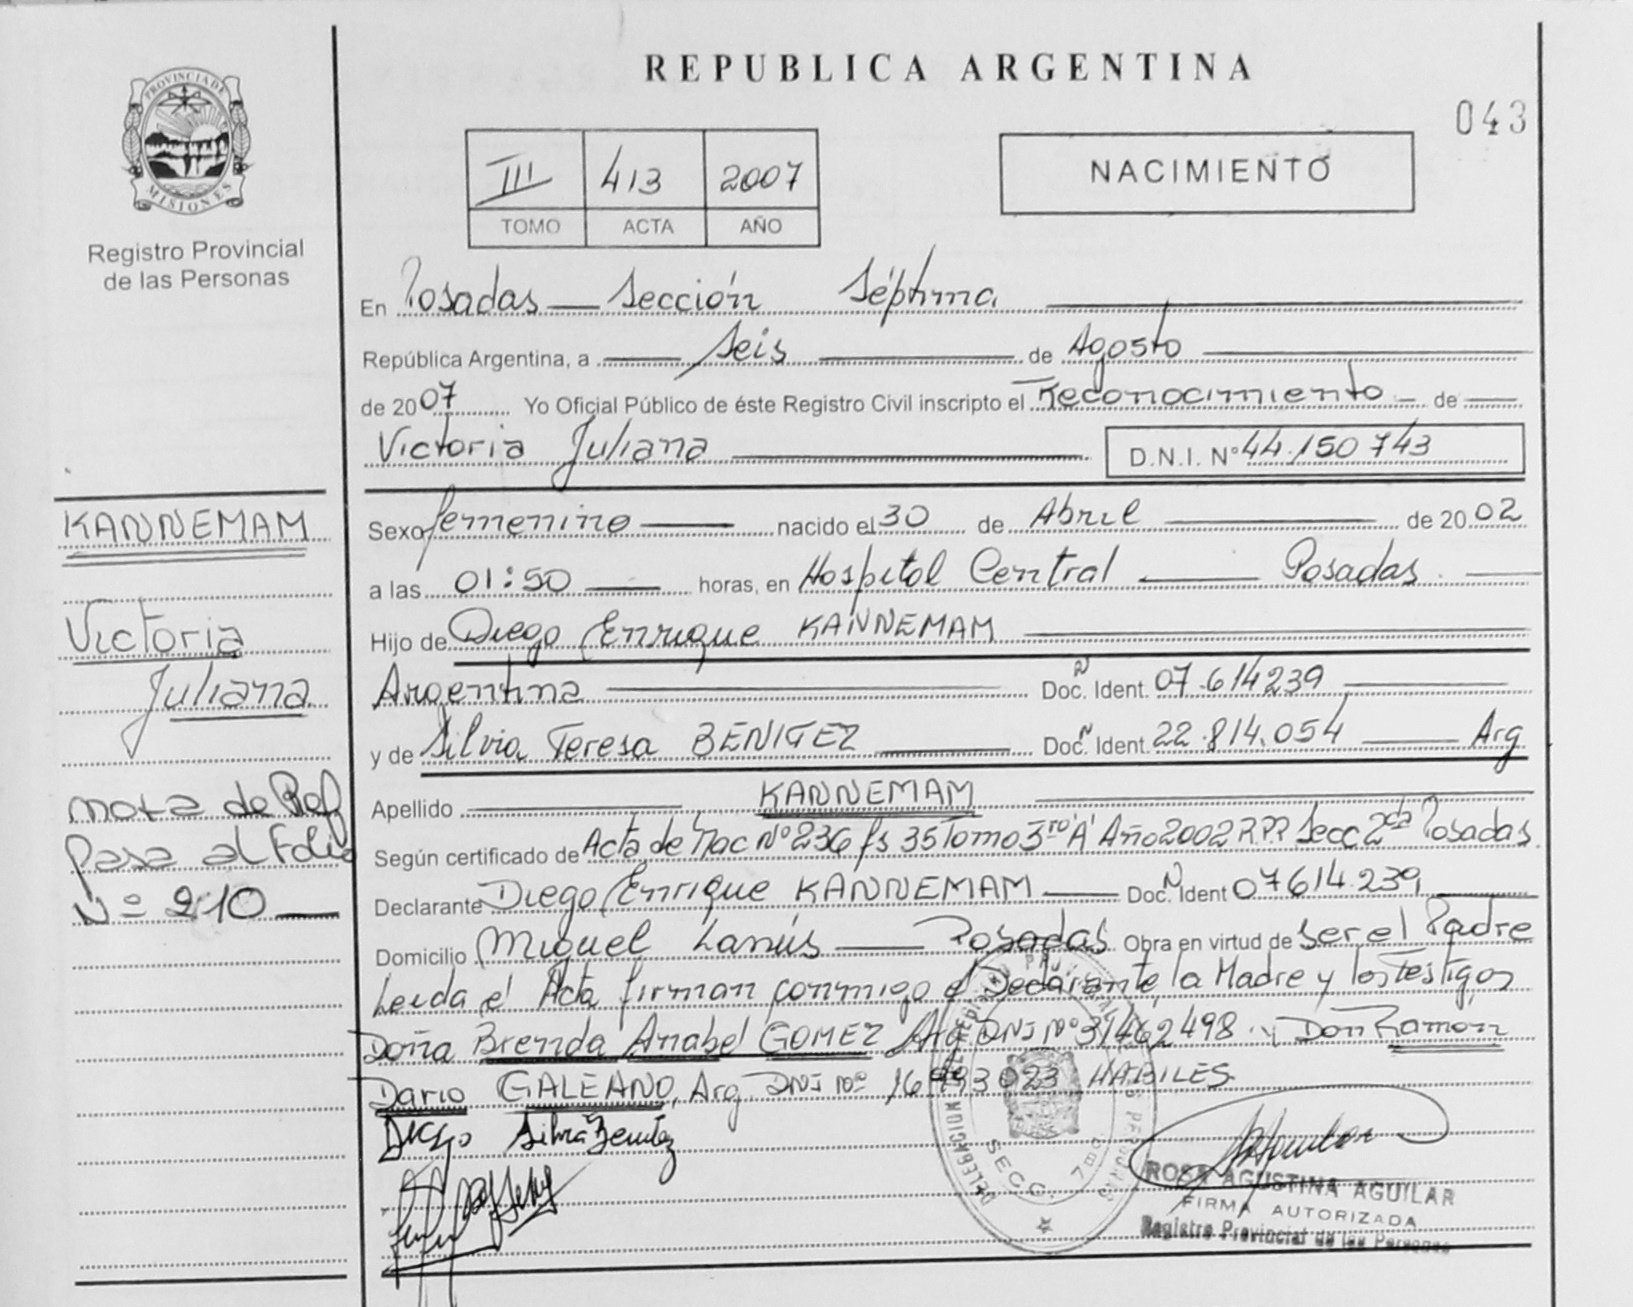 REPUBLICA ARGENTINA
043
PROVINCIA DE MISIONES
Registro Provincial
de las Personas
III 413 2007
TOMO ACTA AÑO
NACIMIENTO
En Posadas — Sección Séptima
República Argentina, a Seis de Agosto
de 2007 Yo Oficial Público de éste Registro Civil inscripto el Reconocimiento de
Victoria Juliana D.N.I. Nº 44.150 743
Sexo femenino nacido el 30 de Abril de 2002
a las 01:50 horas, en Hospital Central Posadas.
Hijo de Diego Enrique KANNEMAM
Argentina Doc. Ident. 07.614239
y de Silvia Teresa BENITEZ Doc. Ident. 22.814.054 Arg
Apellido KANNEMAM
Según certificado de Acta de Nac Nº 236 fs 35 Tomo 3ro "A" Año 2002 R.P.P. Secc 2da Posadas.
Declarante Diego Enrique KANNEMAM Doc. Ident 07614.239
Domicilio Miguel Lanús — Posadas Obra en virtud de ser el Padre
Leida el Acta firman conmigo el Declarante, la Madre y los Testigos
Doña Brenda Anabel GOMEZ Arg DNI Nº 31462498 y Don Ramon
Dario GALEANO, Arg. DNI Nº HABILES
KANNEMAM
Victoria
Juliana
nota de Ref
Pasa al Folio
Nº 210
Diego Silvia Benitez
SECC. 7
ROSA AGUSTINA AGUILAR
FIRMA AUTORIZADA
Registro Provincial de las Personas